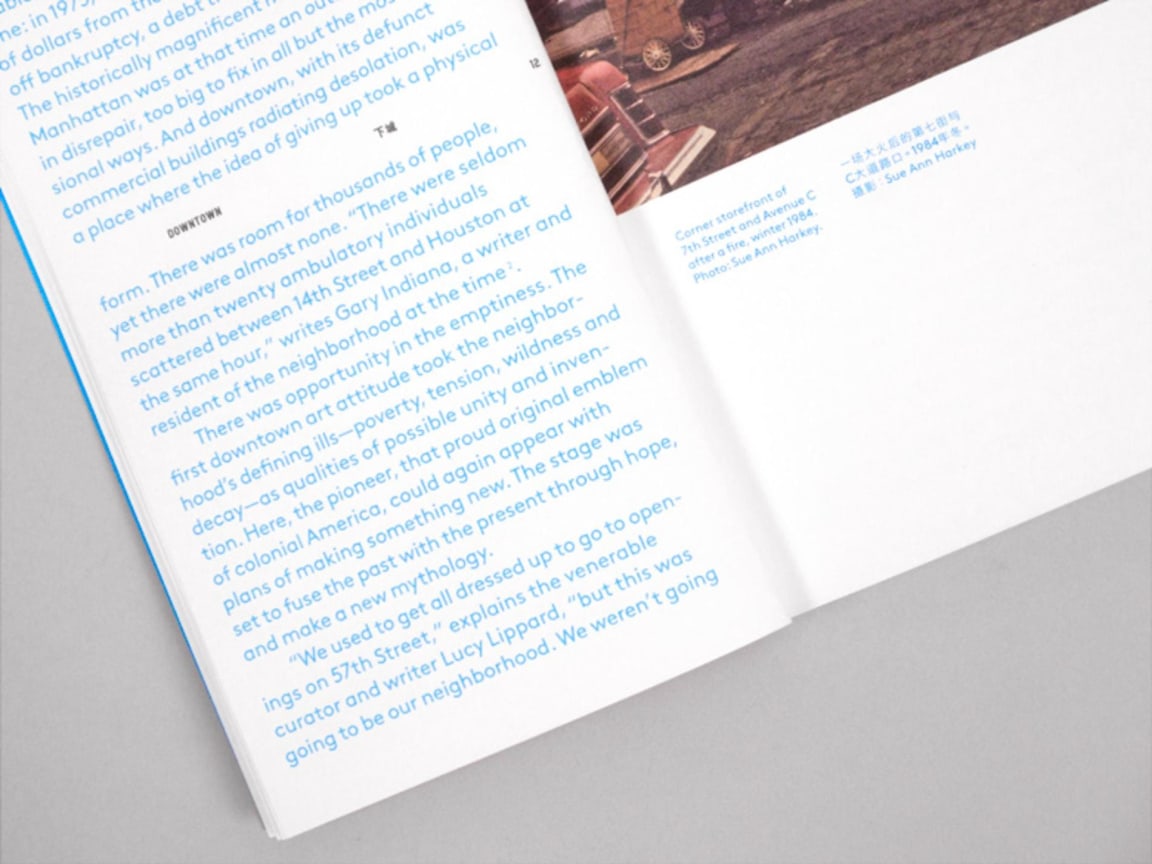 ne: in 1975,
of dollars from the
off bankruptcy, a debt
The historically magnificent
Manhattan was at that time an
in disrepair, too big to fix in all but the
sional ways. And downtown, with its defunct
commercial buildings radiating desolation, was
a place where the idea of giving up took a physical
12
下城
DOWNTOWN
form. There was room for thousands of people,
yet there were almost none. “There were seldom
more than twenty ambulatory individuals
scattered between 14th Street and Houston at
the same hour,” writes Gary Indiana, a writer and
resident of the neighborhood at the time².
There was opportunity in the emptiness. The
first downtown art attitude took the neighbor-
hood’s defining ills—poverty, tension, wildness and
decay—as qualities of possible unity and inven-
tion. Here, the pioneer, that proud original emblem
of colonial America, could again appear with
plans of making something new. The stage was
set to fuse the past with the present through hope,
and make a new mythology.
“We used to get all dressed up to go to open-
ings on 57th Street,” explains the venerable
curator and writer Lucy Lippard, “but this was
going to be our neighborhood. We weren’t going
Corner storefront of
7th Street and Avenue C
after a fire, winter 1984.
Photo: Sue Ann Harkey.
一场大火后的第七街与
C大道路口，1984年冬。
摄影：Sue Ann Harkey